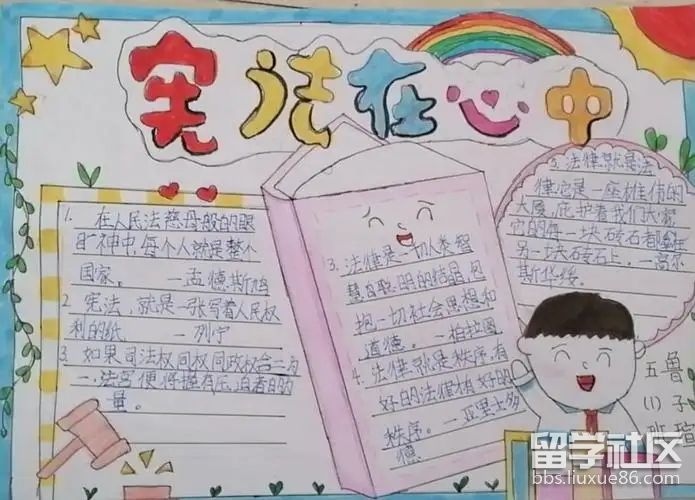 宪法在心中
1. 在人民法慈母般的眼
神中,每个人就是整个
国家。 —孟德斯鸠
2. 宪法,就是一张写着人民权
利的纸。 —列宁
3. 如果司法权同
法官便将握有压迫者的
量。
3. 法律是一切人类智
慧聪明的结晶,包
括一切社会思想和
道德。 —柏拉图
4. 法律就是秩序,有
好的法律才有好的
秩序。 —亚里士多
德
5. 法律就是法
律,它是一座雄伟的
大厦,庇护着我们大家
它的每一块砖石都垒在
另一块砖石上。 —高尔
斯华绥。
五(1)班
鲁子瑄
留学社区
bbs.liuxue86.com